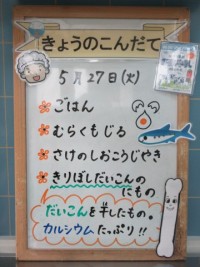 きょうのこんだて
5月27日(火)
ごはん
むらくもじる
さけのしおこうじやき
きりぼしだいこんの
にもの
だいこんを干したもの。
カルシウムたっぷり!!